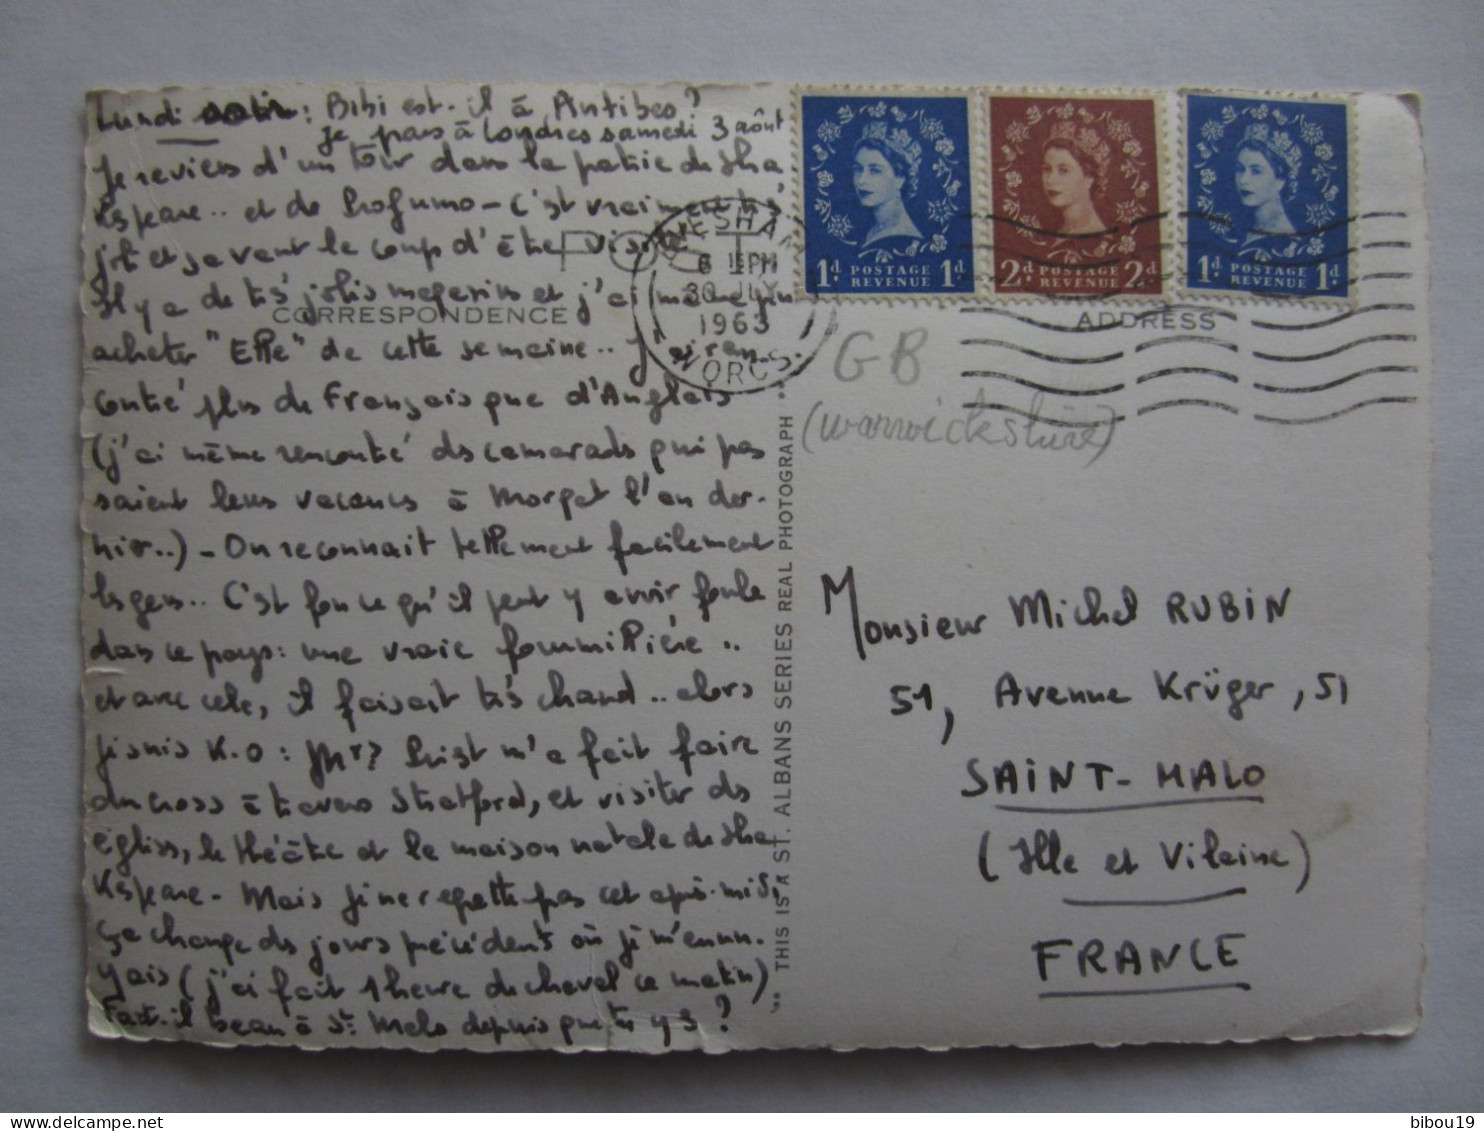 Lundi soir : Bibi est-il à Antibes ?
je pars à Londres samedi 3 août
Je reviens d'un tour dans la patrie de Sha
kespeare.. et de Profumo - C'est vraiment très
joli et ça vaut le coup d'être visité
Il y a de très jolis magasins et j'ai même pu
acheter "Elle" de cette semaine.. J'ai ren-
contré plus de Français que d'Anglais
(j'ai même rencontré des camarades qui pas
saient leurs vacances à Morgat l'an der-
nier..) - On reconnait tellement facilement
les gens.. C'est fou ce qu'il peut y avoir foule
dans ce pays : une vraie fourmillière ..
et avec cela, il faisait très chaud .. alors
je suis K.O : m'a fait faire
du cross à travers Stratford, et visiter des
églises, le théâtre et la maison natale de Sha
kespeare - Mais je ne regrette pas cet après-midi,
ça change des jours précédents où je m'ennu-
yais (j'ai fait 1 heure de cheval ce matin)
Fait-il beau à St Malo depuis que tu y es ?
POST
CORRESPONDENCE
ADDRESS
ESHA
6 15 PM
30 JLY
1963
WORCS.
1d. POSTAGE REVENUE 1d.
2d. POSTAGE REVENUE 2d.
1d. POSTAGE REVENUE 1d.
GB
(Warwickshire)
"THIS IS A ST. ALBANS SERIES REAL PHOTOGRAPH"
Monsieur Michel RUBIN
51, Avenue Krüger, 51
SAINT-MALO
(Ille et Vilaine)
FRANCE
bibou19